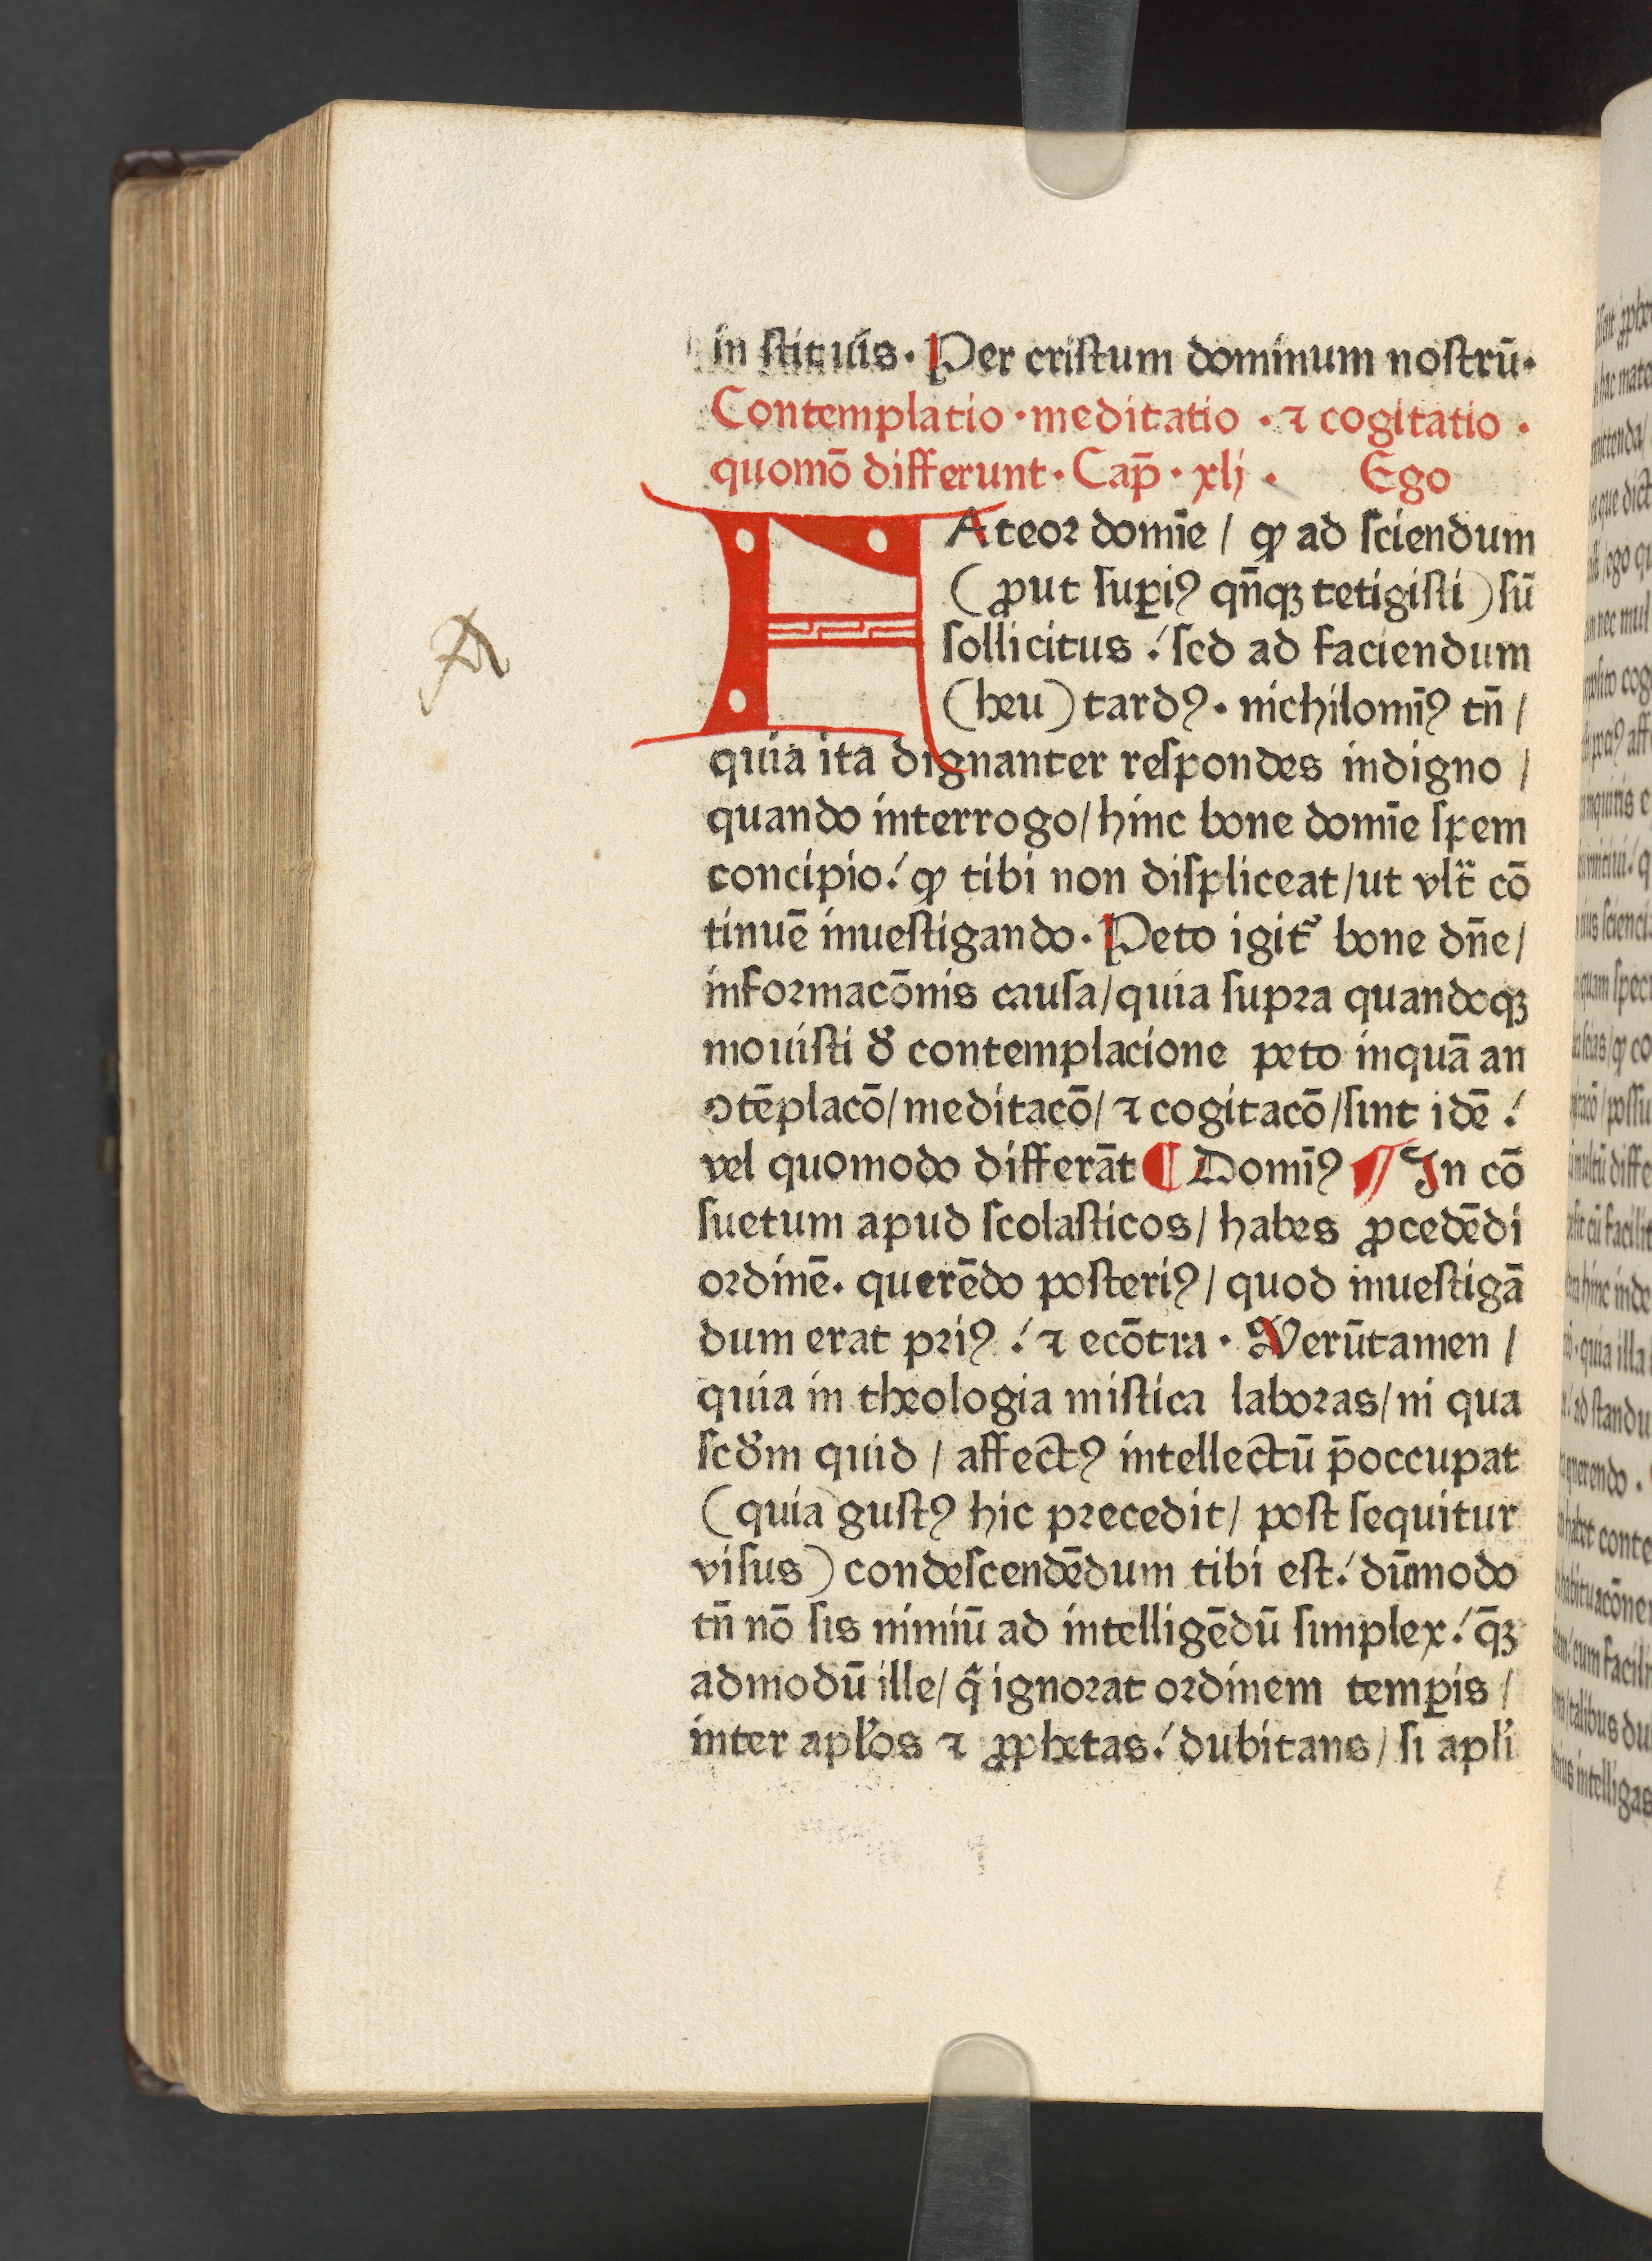 in stituis. Per cristum dominum nostrū.
Contemplatio · meditatio · ⁊ cogitatio ·
quomō differunt · Cap̄ · xlj · Ego
FAteor domīe / ꝙ ad sciendum
(ꝓut suꝑiꝰ qn̄qꝫ tetigisti) sū
sollicitus ./ sed ad faciendum
(heu) tardꝰ. nichilomīꝰ tn̄ /
quia ita dignanter respondes indigno /
quando interrogo / hinc bone domīe spem
concipio ./ ꝙ tibi non displiceat / ut vlt̄ cō
tinuē inuestigando. Peto igit᷑ bone dn̄e /
informacōnis causa / quia supra quandoqꝫ
mouisti ꝺ̄ contemplacione peto inquā an
ↄtēplacō / meditacō / ⁊ cogitacō / sint idē ./
vel quomodo differāt ¶ Domīꝰ ¶ In cō
suetum apud scolasticos / habes ꝓcedēdi
ordinē. querēdo posteriꝰ / quod inuestigā
dum erat priꝰ ./ ⁊ ecōtra · Verūtamen /
quia in theologia mistica laboras / ni qua
scꝺ̄m quid / affectꝰ intellectū p̄occupat
(quia gustꝰ hic precedit / post sequitur
visus) condescendēdum tibi est ./ dūmodo
tn̄ nō sis nimiū ad intelligēdū simplex ./ q̄ꝫ
admodū ille / q̄ ignorat ordinem temꝑis /
inter apl̄os ⁊ ꝓphetas ./ dubitans / si apl̄i